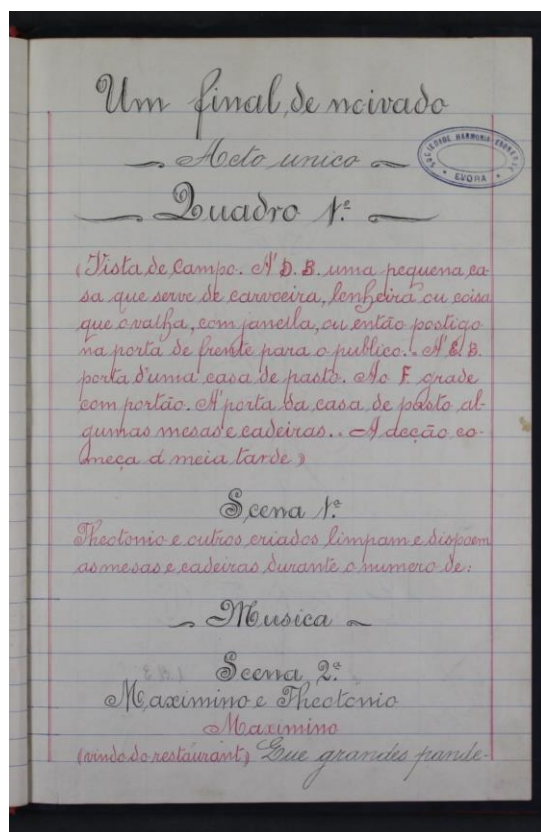 Um final de noivado
Acto unico
SOCIEDADE HARMONIA EBORENSE
EVORA
Quadro 1º
(Vista de Campo. A' D. B. uma pequena ca-
sa que serve de carvoeira, lenheira ou coisa
que o valha, com janella, ou então postigo
na porta de frente para o publico. A' E. B.
porta d'uma casa de pasto. Ao F. grade
com portão. A' porta da casa de pasto al-
gumas mesas e cadeiras.. A acção co-
meça á meia tarde)
Scena 1ª
Theotonio e outros criados limpam e dispoem
as mesas e cadeiras durante o numero de:
Musica
E. B.) Scena 2ª
Maximino e Theotonio
Maximino
(vindo do restaurant) Que grandes pande-